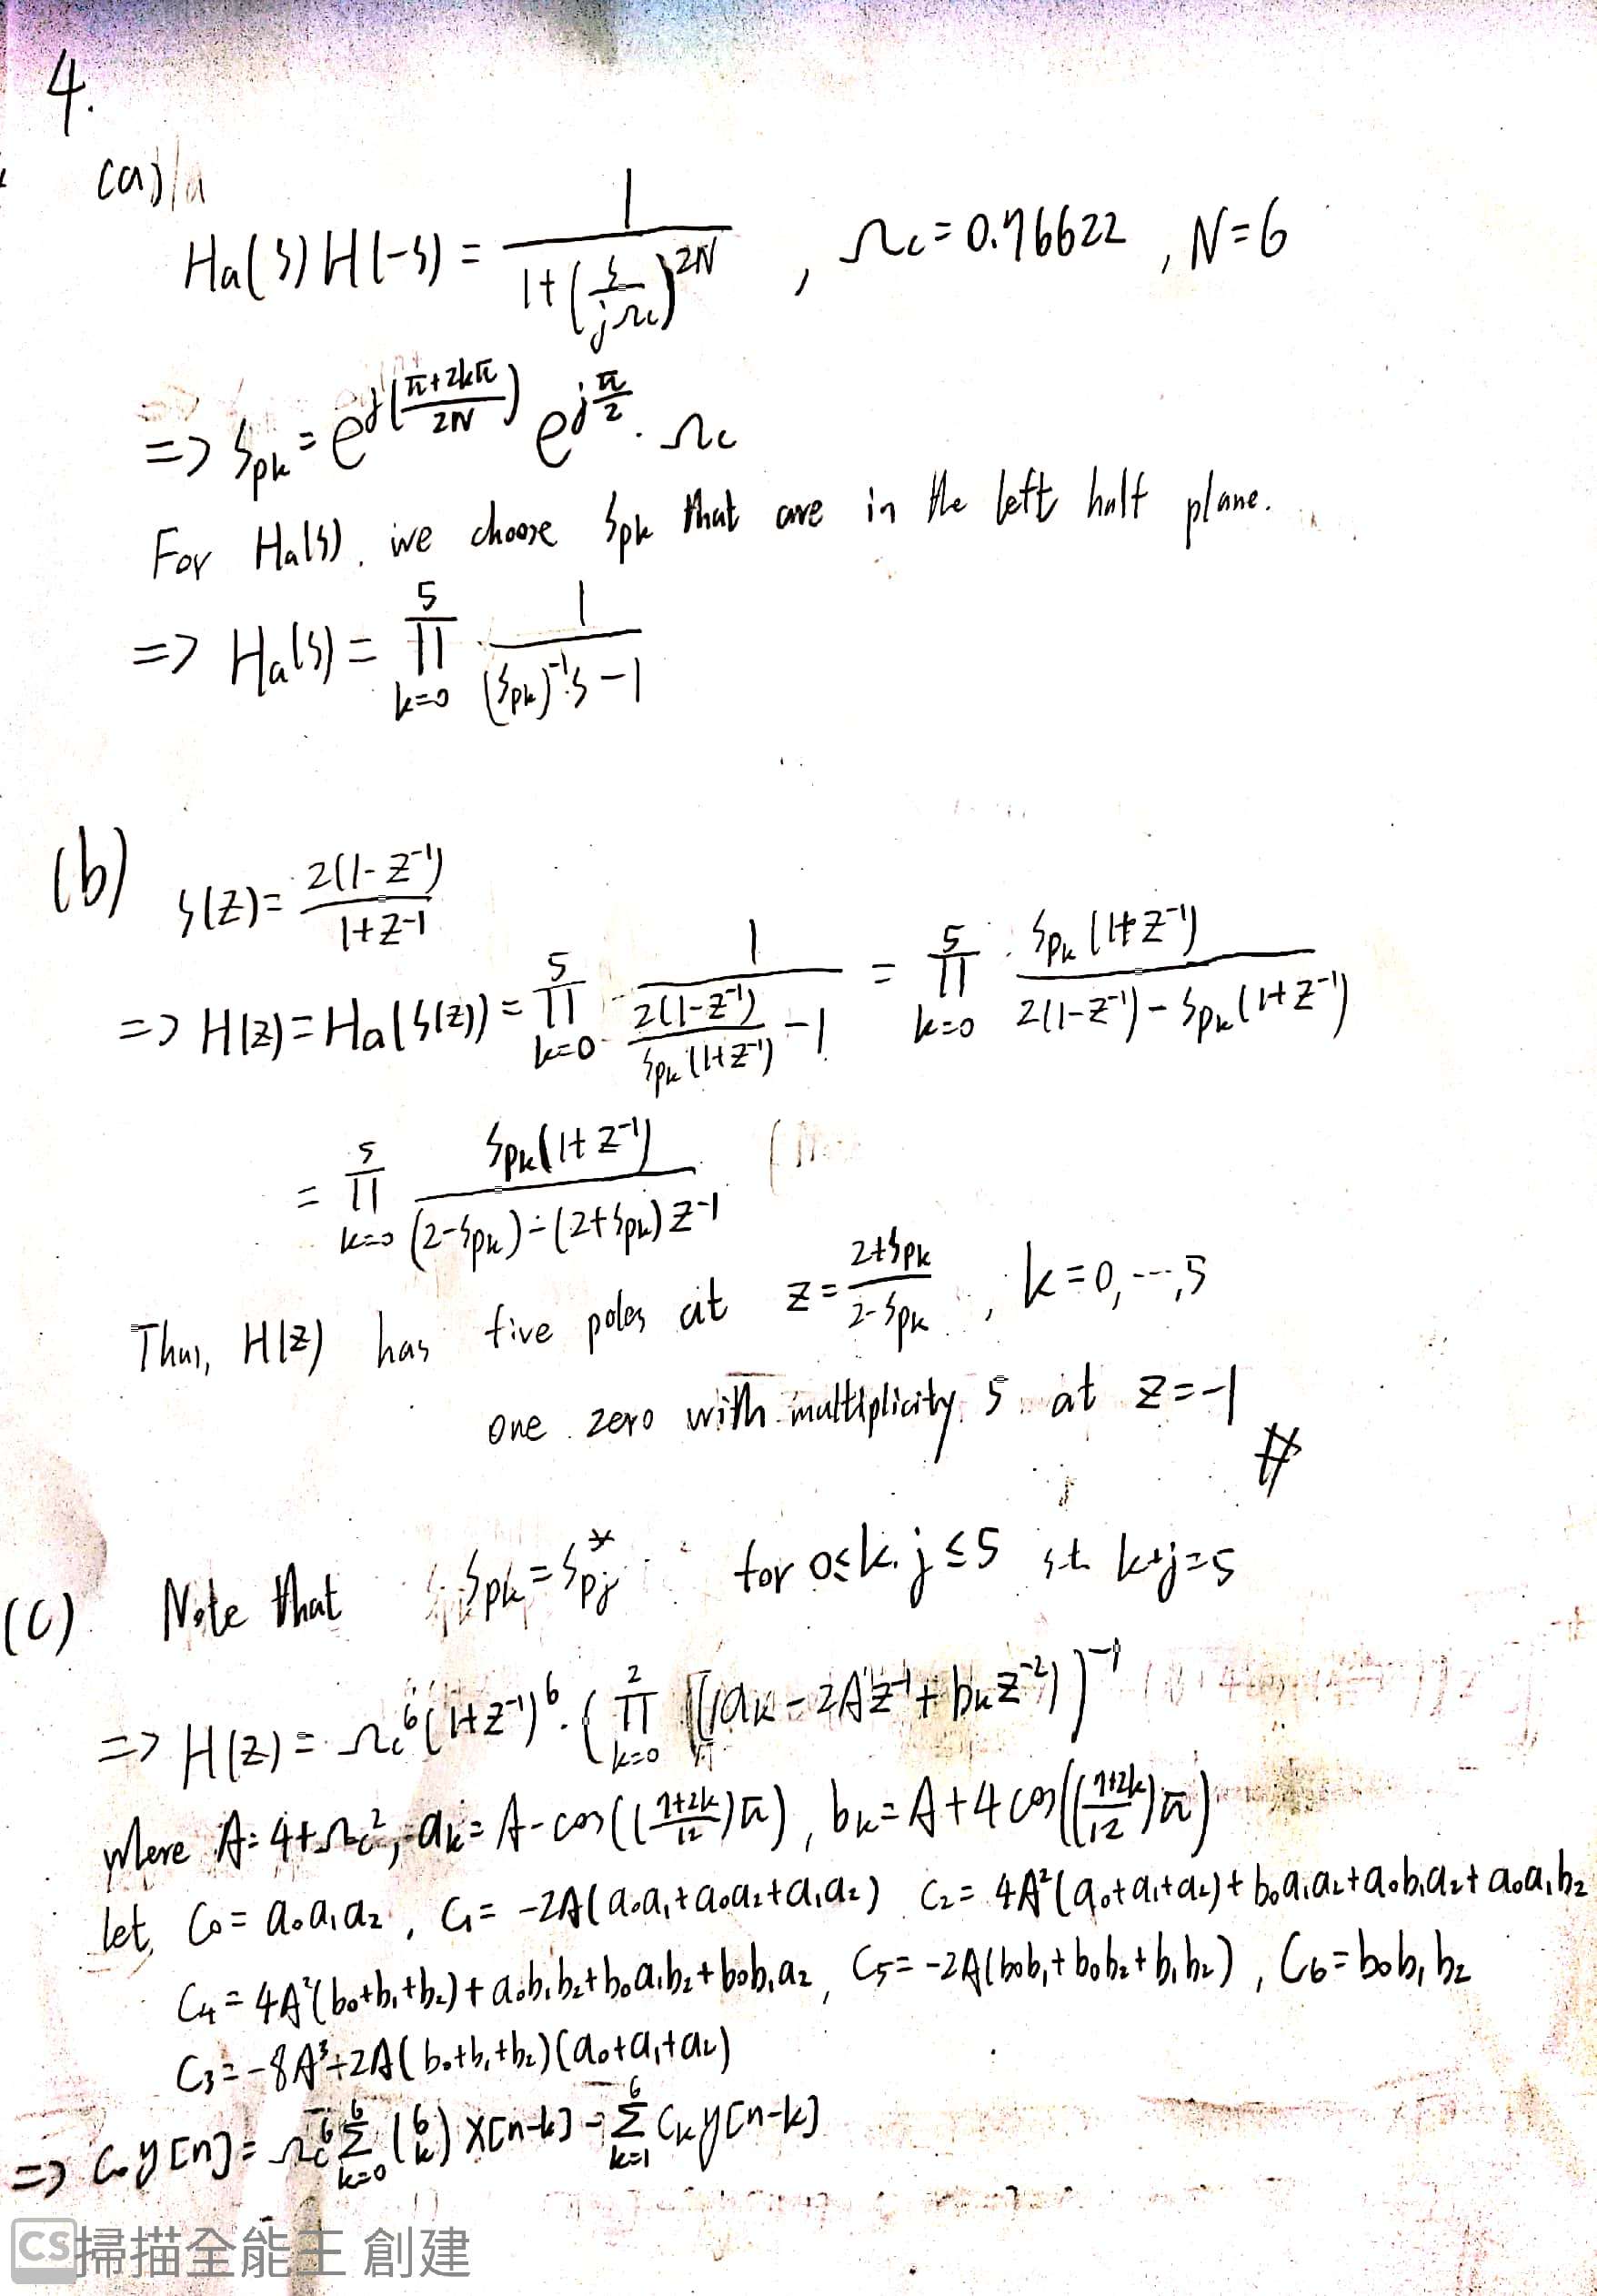 4.
(a)
Ha(s)H(-s) = 1/(1+(s/(jΩc))^2N) , Ωc = 0.76622 , N=6
=> Spk = e^j((π+2kπ)/2N) e^j(π/2) · Ωc
For Ha(s), we choose Spk that are in the left half plane.
=> Ha(s) = ∏_{k=0}^{5} 1/((Spk)^-1 s - 1)
(b) S(z) = 2(1-z^-1)/(1+z^-1)
=> H(z) = Ha(S(z)) = ∏_{k=0}^{5} 1/(2(1-z^-1)/(Spk(1+z^-1)) - 1) = ∏_{k=0}^{5} Spk(1+z^-1)/(2(1-z^-1) - Spk(1+z^-1))
= ∏_{k=0}^{5} Spk(1+z^-1)/((2-Spk) - (2+Spk)z^-1)
Thus, H(z) has five poles at z = (2+Spk)/(2-Spk) , k=0,---,5
one zero with multiplicity 5 at z=-1 #
(c) Note that Spk = Spj* for 0≤k, j≤5 s.t. k+j=5
=> H(z) = Ωc^6 (1+z^-1)^6 · (∏_{k=0}^{2} (ak - 2Az^-1 + bk z^-2))^-1
where A = 4+Ωc^2, ak = A - cos(((7+2k)/12)π), bk = A+4cos(((7+2k)/12)π)
let, C0 = a0a1a2, C1 = -2A(a0a1+a0a2+a1a2) C2 = 4A^2(a0+a1+a2)+b0a1a2+a0b1a2+a0a1b2
C4 = 4A^2(b0+b1+b2)+a0b1b2+b0a1b2+b0b1a2, C5 = -2A(b0b1+b0b2+b1b2), C6 = b0b1b2
C3 = -8A^3-2A(b0+b1+b2)(a0+a1+a2)
=> C0y[n] = Ωc^6 ∑_{k=0}^{6} (6 k) x[n-k] - ∑_{k=1}^{6} Ck y[n-k]
CS 掃描全能王 創建